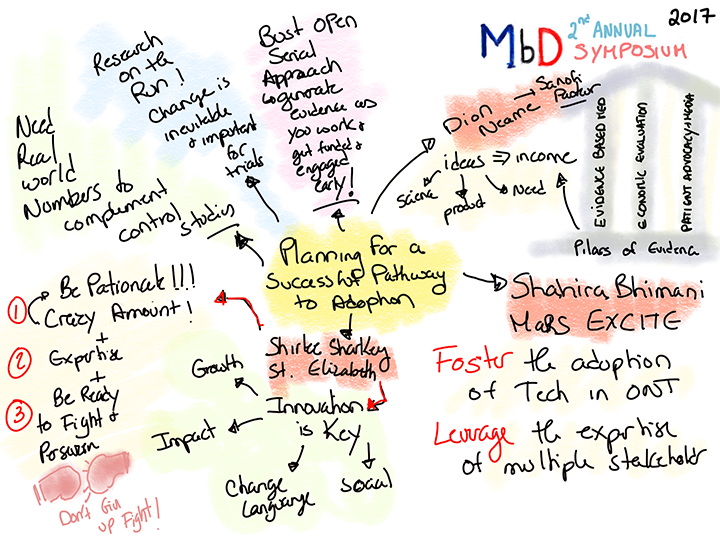 MbD
2nd ANNUAL
SYMPOSIUM
2017
Planning for a
Successful Pathway
to Adoption
Need
Real
world
Numbers to
complement
control
studies
Research
on the
Run!
Change is
inevitable
& important
for
trials
Bust open
Serial
Approach
evidence as
you work &
get funded &
engaged
early!
Dion
Neame
Sanofi
Pasteur
ideas ⇒ income
Science
product
Need
EVIDENCE BASED MED
ECONOMIC EVALUATION
PATIENT ADVOCACY + MEDIA
Pillars of Evidence
Shahira Bhimani
MaRS EXCITE
Foster the adoption
of Tech in ONT
Leverage the expertise
of multiple stakeholder
Shirlee Sharkey
St. Elizabeth
Innovation
is Key
Growth
Impact
Change
Language
social
1 Be Pationate!!!
Crazy Amount!
+
2 Expertise
+
3 Be Ready
to Fight &
Don't Give
up Fight!